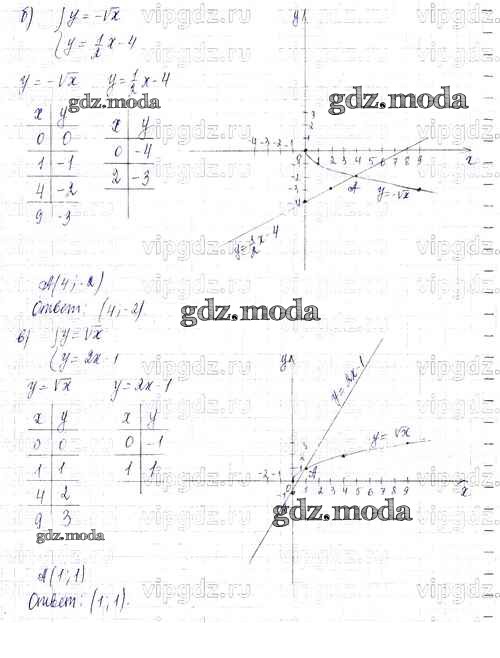 б) { y = -√x
{ y = 1/2 x - 4
y = -√x   y = 1/2 x - 4
x | y
0 | 0
1 | -1
4 | -2
9 | -3
x | y
0 | -4
2 | -3
y
3
2
1
-4 -3 -2 -1 0 1 2 3 4 5 6 7 8 9 x
-1
-2
-3
-4
A
y = -√x
y = 1/2 x - 4
A(4; -2)
Ответ: (4; -2)
в) { y = √x
{ y = 2x - 1
y = √x   y = 2x - 1
x | y
0 | 0
1 | 1
4 | 2
9 | 3
x | y
0 | -1
1 | 1
y
3
2
1
-2 -1 0 1 2 3 4 5 6 7 8 9 x
-1
A
y = 2x - 1
y = √x
A(1; 1)
Ответ: (1; 1).
gdz.moda
gdz.moda
gdz.moda
gdz.moda
gdz.moda
vipgdz.ru